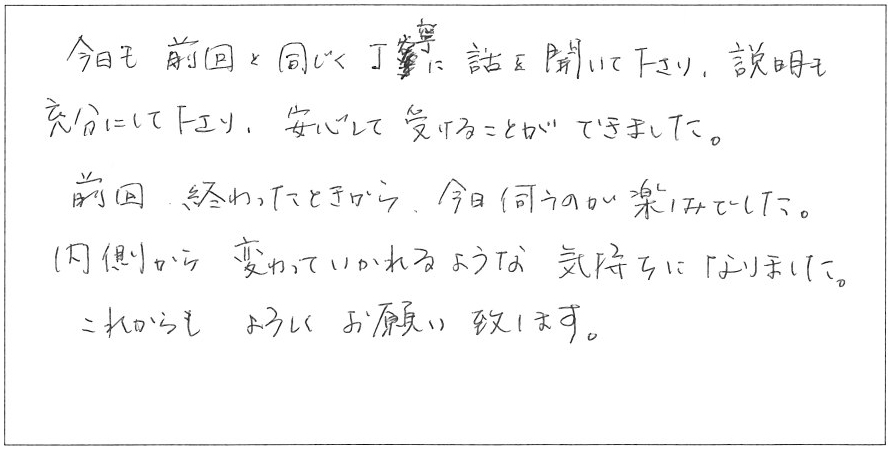 今日も前回と同じく丁寧に話を聞いて下さり、説明も
充分にして下さり、安心して受けることができました。
前回、終わったときから、今日伺うのが楽しみでした。
内側から変わっていかれるような気持ちになりました。
これからもよろしくお願い致します。